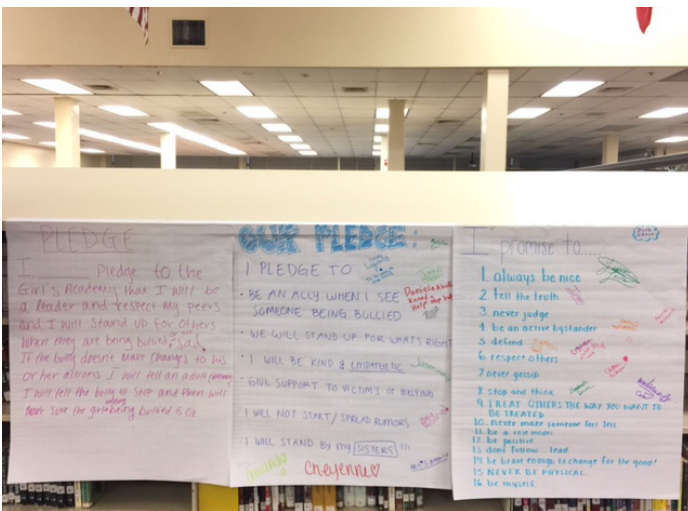 PLEDGE
I ______ Pledge to the
Girl's Academy that I will be
a leader and respect my peers
and I will stand up for others
when they are being bullied or sad.
If the bully doesn't make changes to his
or her actions I will tell an adult
I will tell the bully to stop and then will
sure the being bullied is ok
OUR PLEDGE:
I PLEDGE TO
• BE AN ALLY WHEN I SEE
SOMEONE BEING BULLIED
• WE WILL STAND UP FOR WHAT'S RIGHT
• I WILL BE KIND & EMPATHETIC
• GIVE SUPPORT TO VICTIM'S OF BULLYING
• I WILL NOT START/SPREAD RUMORS
• I WILL STAND BY my SISTERS !!!
Cheyenne
I promise to.....
1. always be nice
2. tell the truth
3. never judge
4. be an active bystander
5 defend
6. respect others
7 never gossip
8. stop and think
9. TREAT OTHERS THE WAY YOU WANT TO
BE TREATED
10. never make someone feel less
11. be a role model
12. be positive
13 dont follow... lead
14 be brave enough to change for the good!
15 NEVER BE PHYSICAL
16. be myself